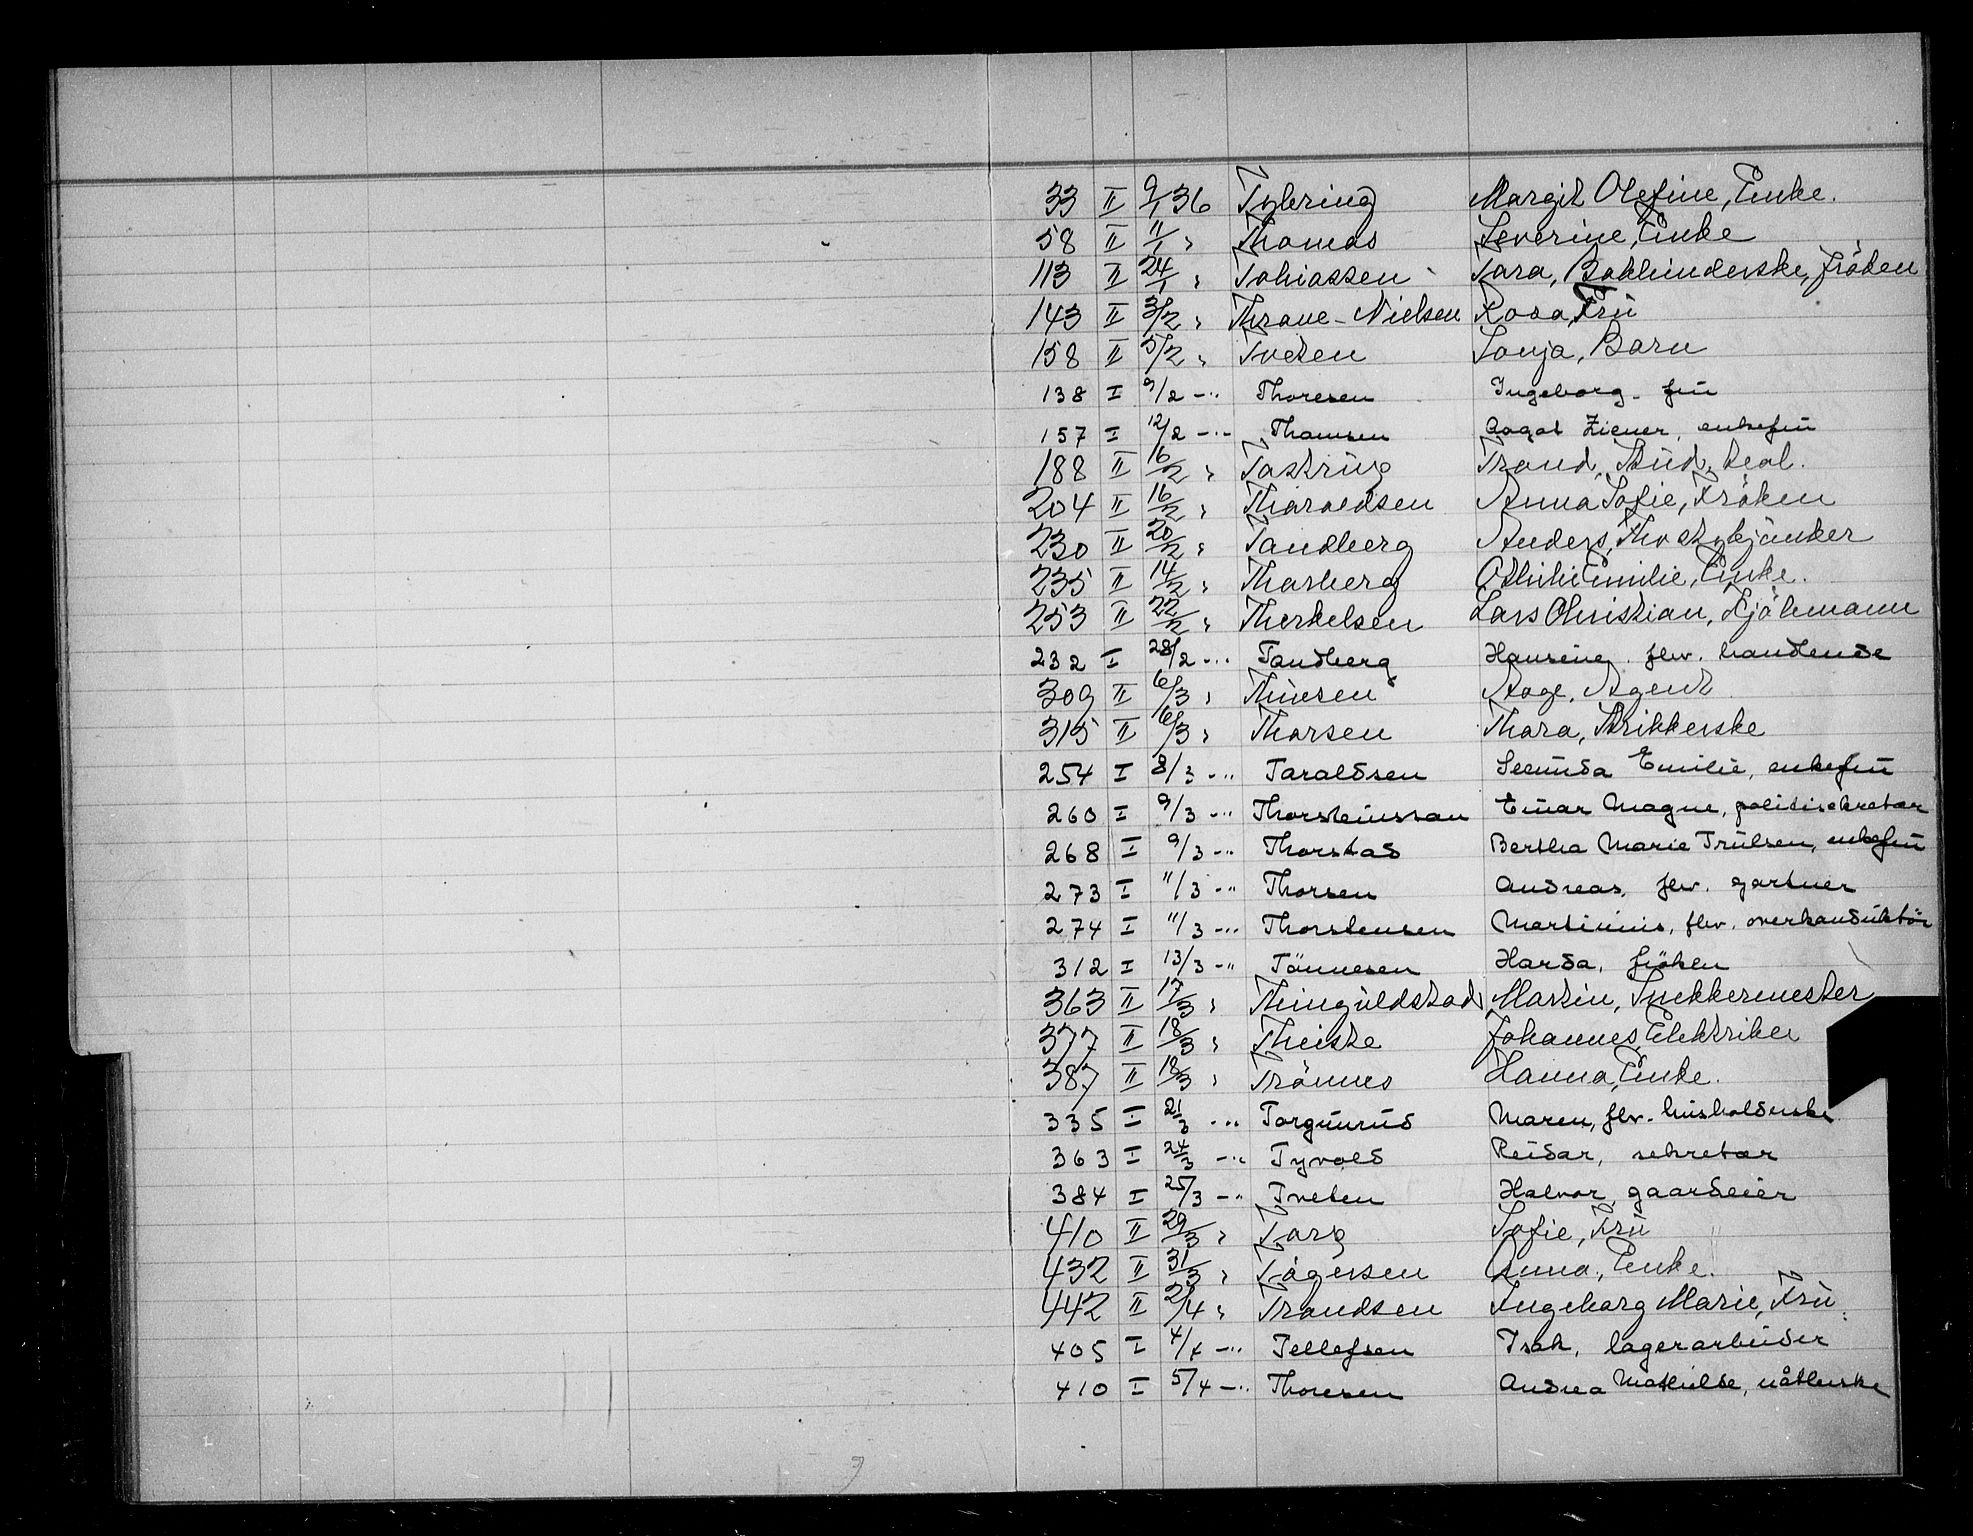 33 II 9/1 36 Tybring Margit Olefine, Enke.
58 II 11/1 " Thomas Severine, Enke
113 II 24/1 " Tobiassen Tara, Bokbinderske, Fröken
143 II 3/2 " Thrane-Nielsen Rosa, Frü
158 II 5/2 " Tveten Sonja, Barn
138 I 9/2 -"- Thoresen Ingeborg. frü
157 I 12/2 -"- Thomsen Aagot Ziener, enkefrü
188 II 16/2 " Tastrüp Trond, Stüd. real.
204 II 16/2 " Tharaldsen Anna Sofie, Fröken
230 II 20/2 " Tandberg Anders,
235 II 14/2 " Thorberg Emilie, Enke.
253 II 22/2 " Therkelsen Lars Christian, Kjöbmann
232 I 28/2 -"- Tandberg Hansine. fhv. handlende
309 II 6/3 " Thüesen Aage, Agent
315 II 6/3 " Thorsen Thora, Strikkerske
254 I 8/3 -"- Taraldsen Secünda Emilie, enkefrü
260 I 9/3 -"- Thorsteinsson Einar Magne, politisekretær
268 I 9/3 -"- Thorstad Bertha Marie Trülsen, enkefrü
273 I 11/3 -"- Thorsen Andreas, fhv. gartner
274 I 11/3 -"- Thorstensen Martinius, fhv. overkondüktör
312 I 13/3 -"- Tönnesen Harda, fröken
363 II 17/3 " Thingüldstad Martin, Snekkermester
377 II 18/3 " Theiste Johannes, Elektriker
387 II 18/3 " Trönnes Hanna, Enke.
335 I 21/3 -"- Torgünrüd Maren, fhv. hüsholderske
363 I 24/3 -"- Tyvold Reidar, sekretær
384 I 25/3 -"- Tveten Halvor, gaardeier
410 II 29/3 " Torp Sofie, Frü
432 II 31/3 " Tågersen Anna, Enke.
442 II 2/4 " Trondsen Ingeborg Marie, Frü.
405 I 4/4 -"- Tellefsen Isak, lagerarbeider
410 I 5/4 -"- Thoresen Andrea Mathilde, nåtlerske